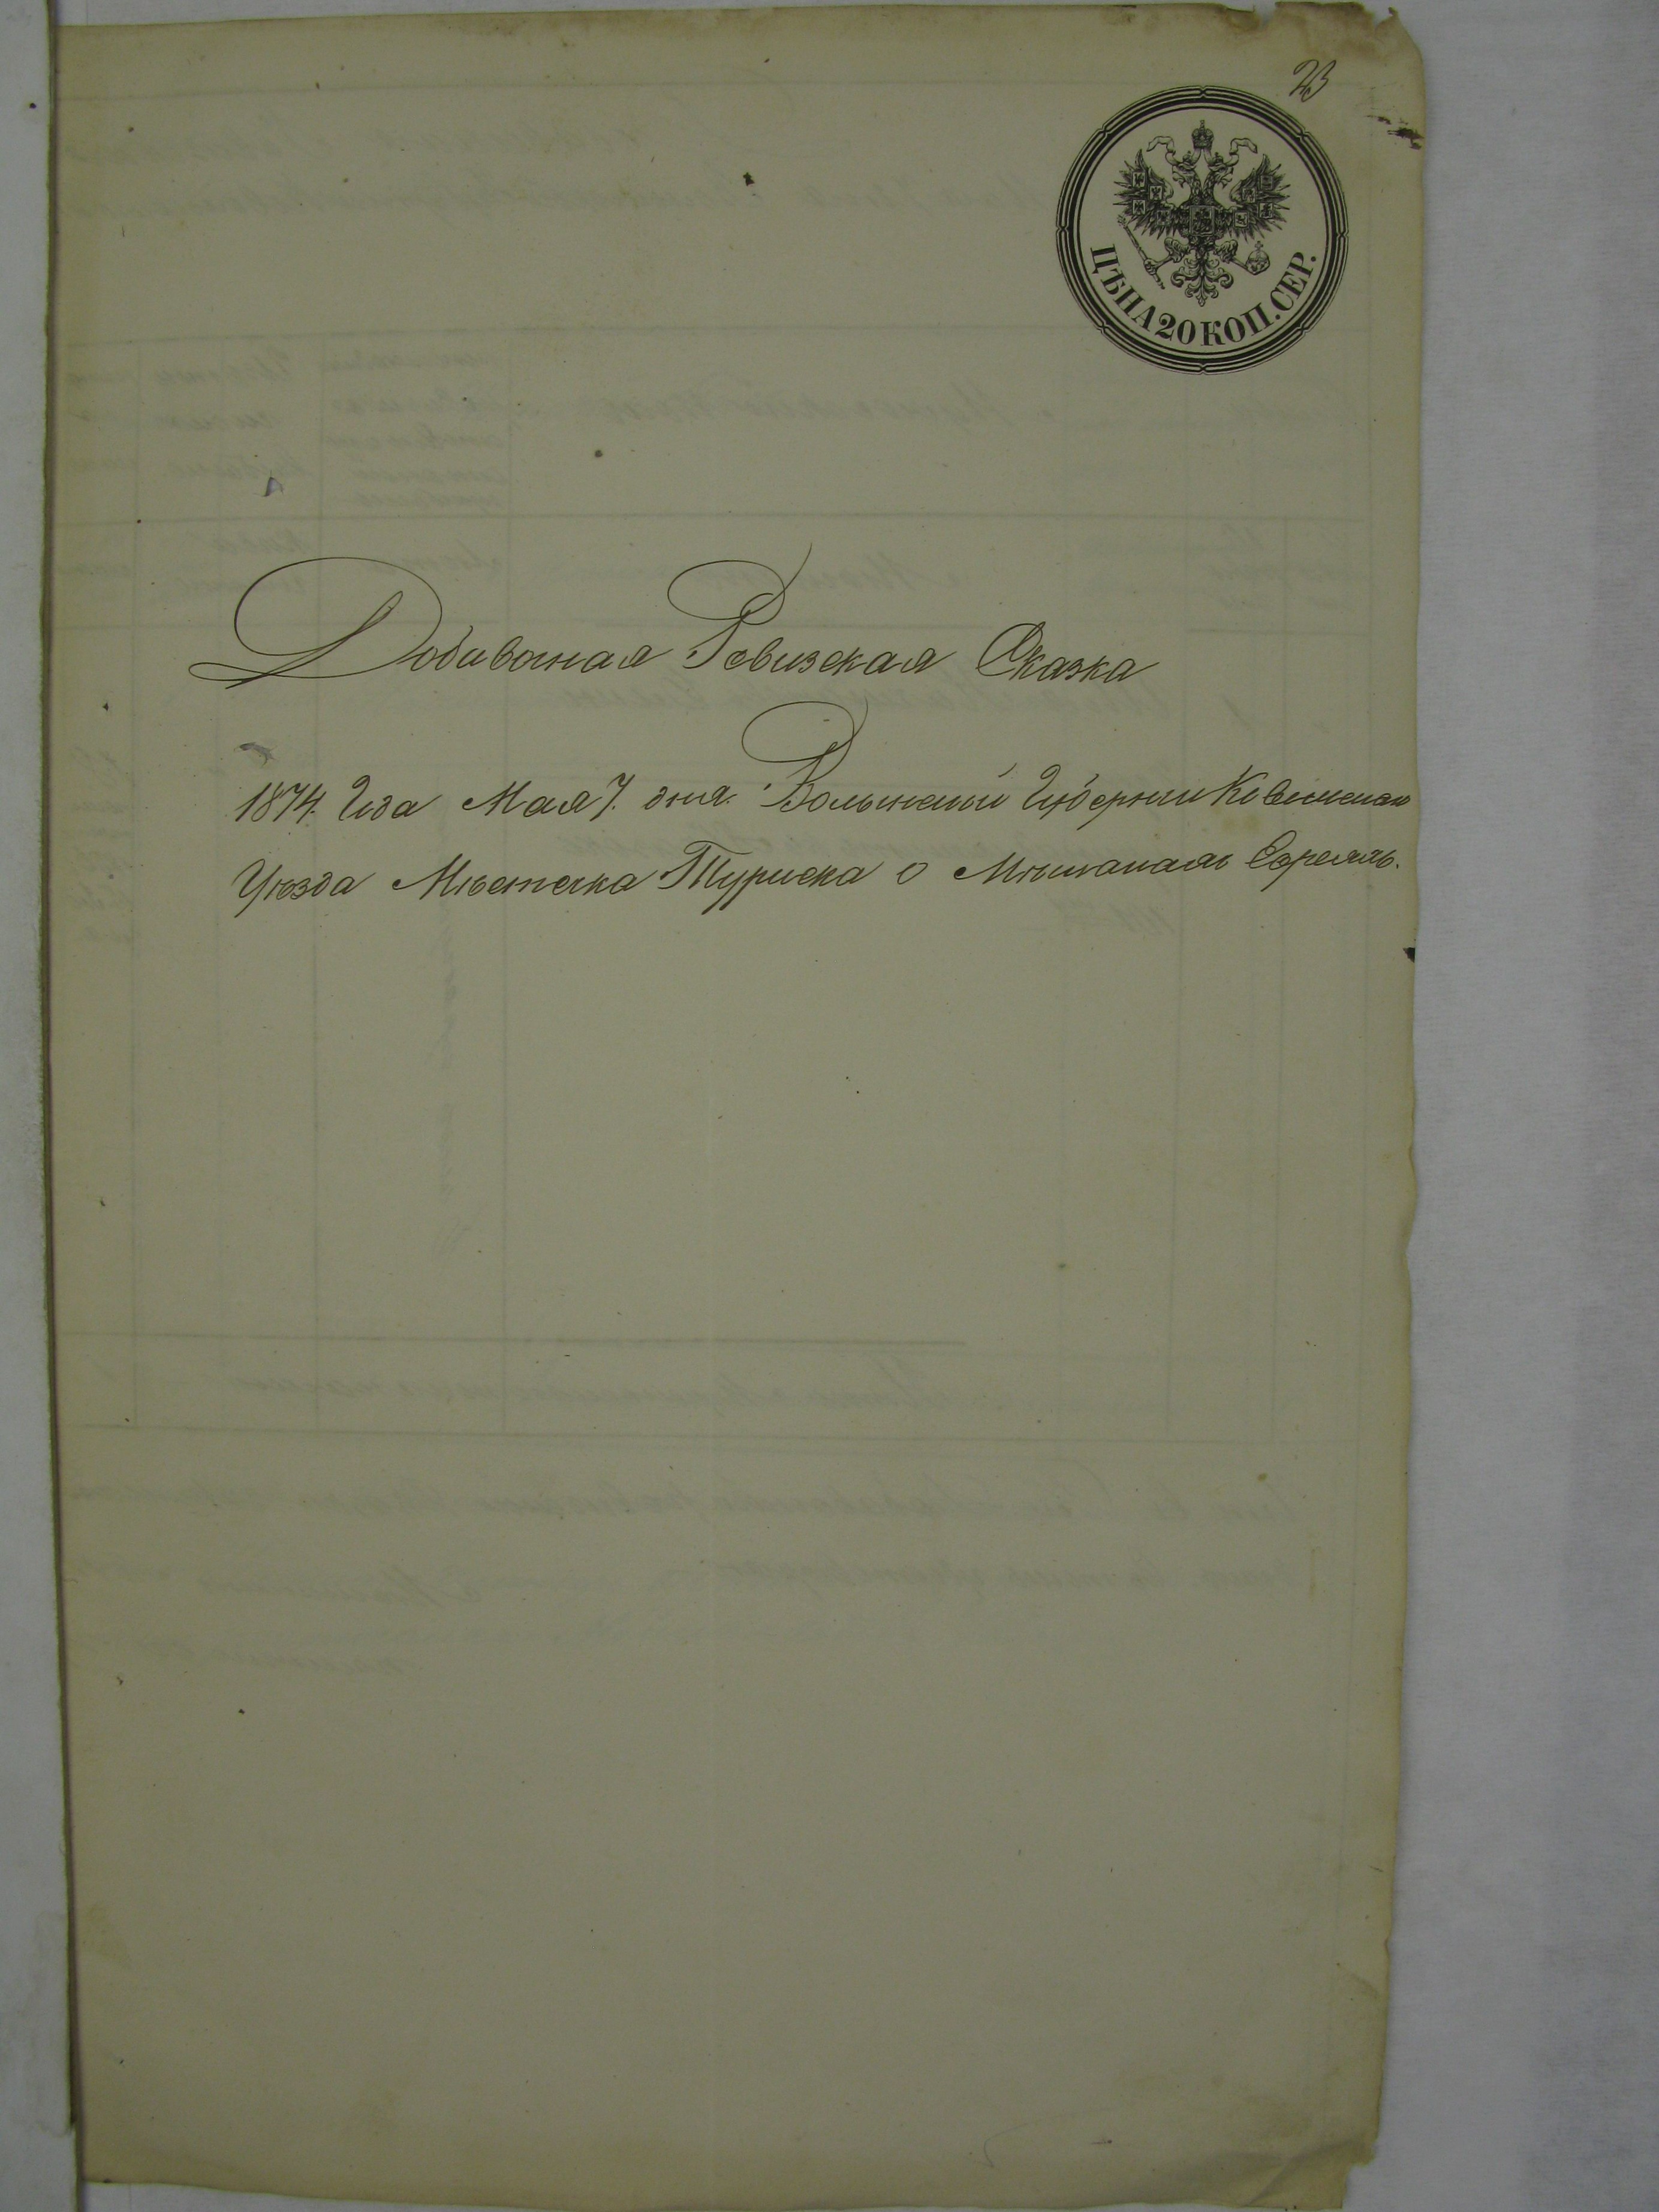 23
ЦѢНА 20 КОП. СЕР.
Добавочная Ревизская Сказка
1874. Года Мая 7. дня. Волынской Губернии Ковельскаго
Уѣзда Мѣстечка Туриска о Мѣщанахъ Евреяхъ.